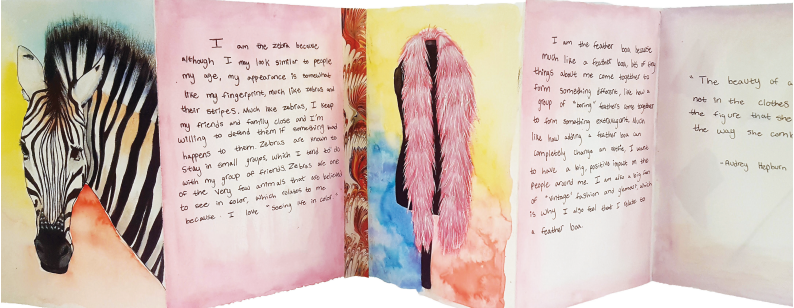 I am the zebra because
although I may look similar to people
my age, my appearance is somewhat
like my fingerprint, much like zebras and
their stripes. Much like zebras, I keep
my friends and family close and I'm
willing to defend them if something bad
happens to them. Zebras are known to
stay in small groups, which I tend to do
with my group of friends. Zebras are one
of the very few animals that are believed
to see in color, which relates to me
because I love "seeing life in color"
I am the feather boa because
much like a feather boa, lots of
things about me come together to
form something different, like how a
group of "boring" feathers come together
to form something extravagant. Much
like how adding a feather boa can
completely change an outfit, I want
to have a big, positive impact on the
people around me. I am also a big fan
of "vintage" fashion and glamour, which
is why I also feel that I relate to
a feather boa.
"The beauty of a
not in the clothes
the figure that she
the way she comb
-Audrey Hepburn